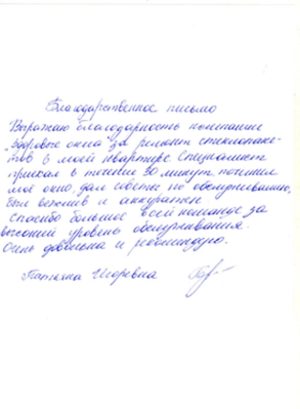 Благодарственное письмо
Выражаю благодарность компании
"Здоровые окна" за ремонт стеклопаке-
тов в моей квартире. Специалист
приехал в течении 30 минут, починил
моё окно, дал советы по обслуживанию,
был вежлив и аккуратен
спасибо большое всей команде за
высокий уровень обслуживания.
Очень довольна и рекомендую.
Татьяна Игоревна